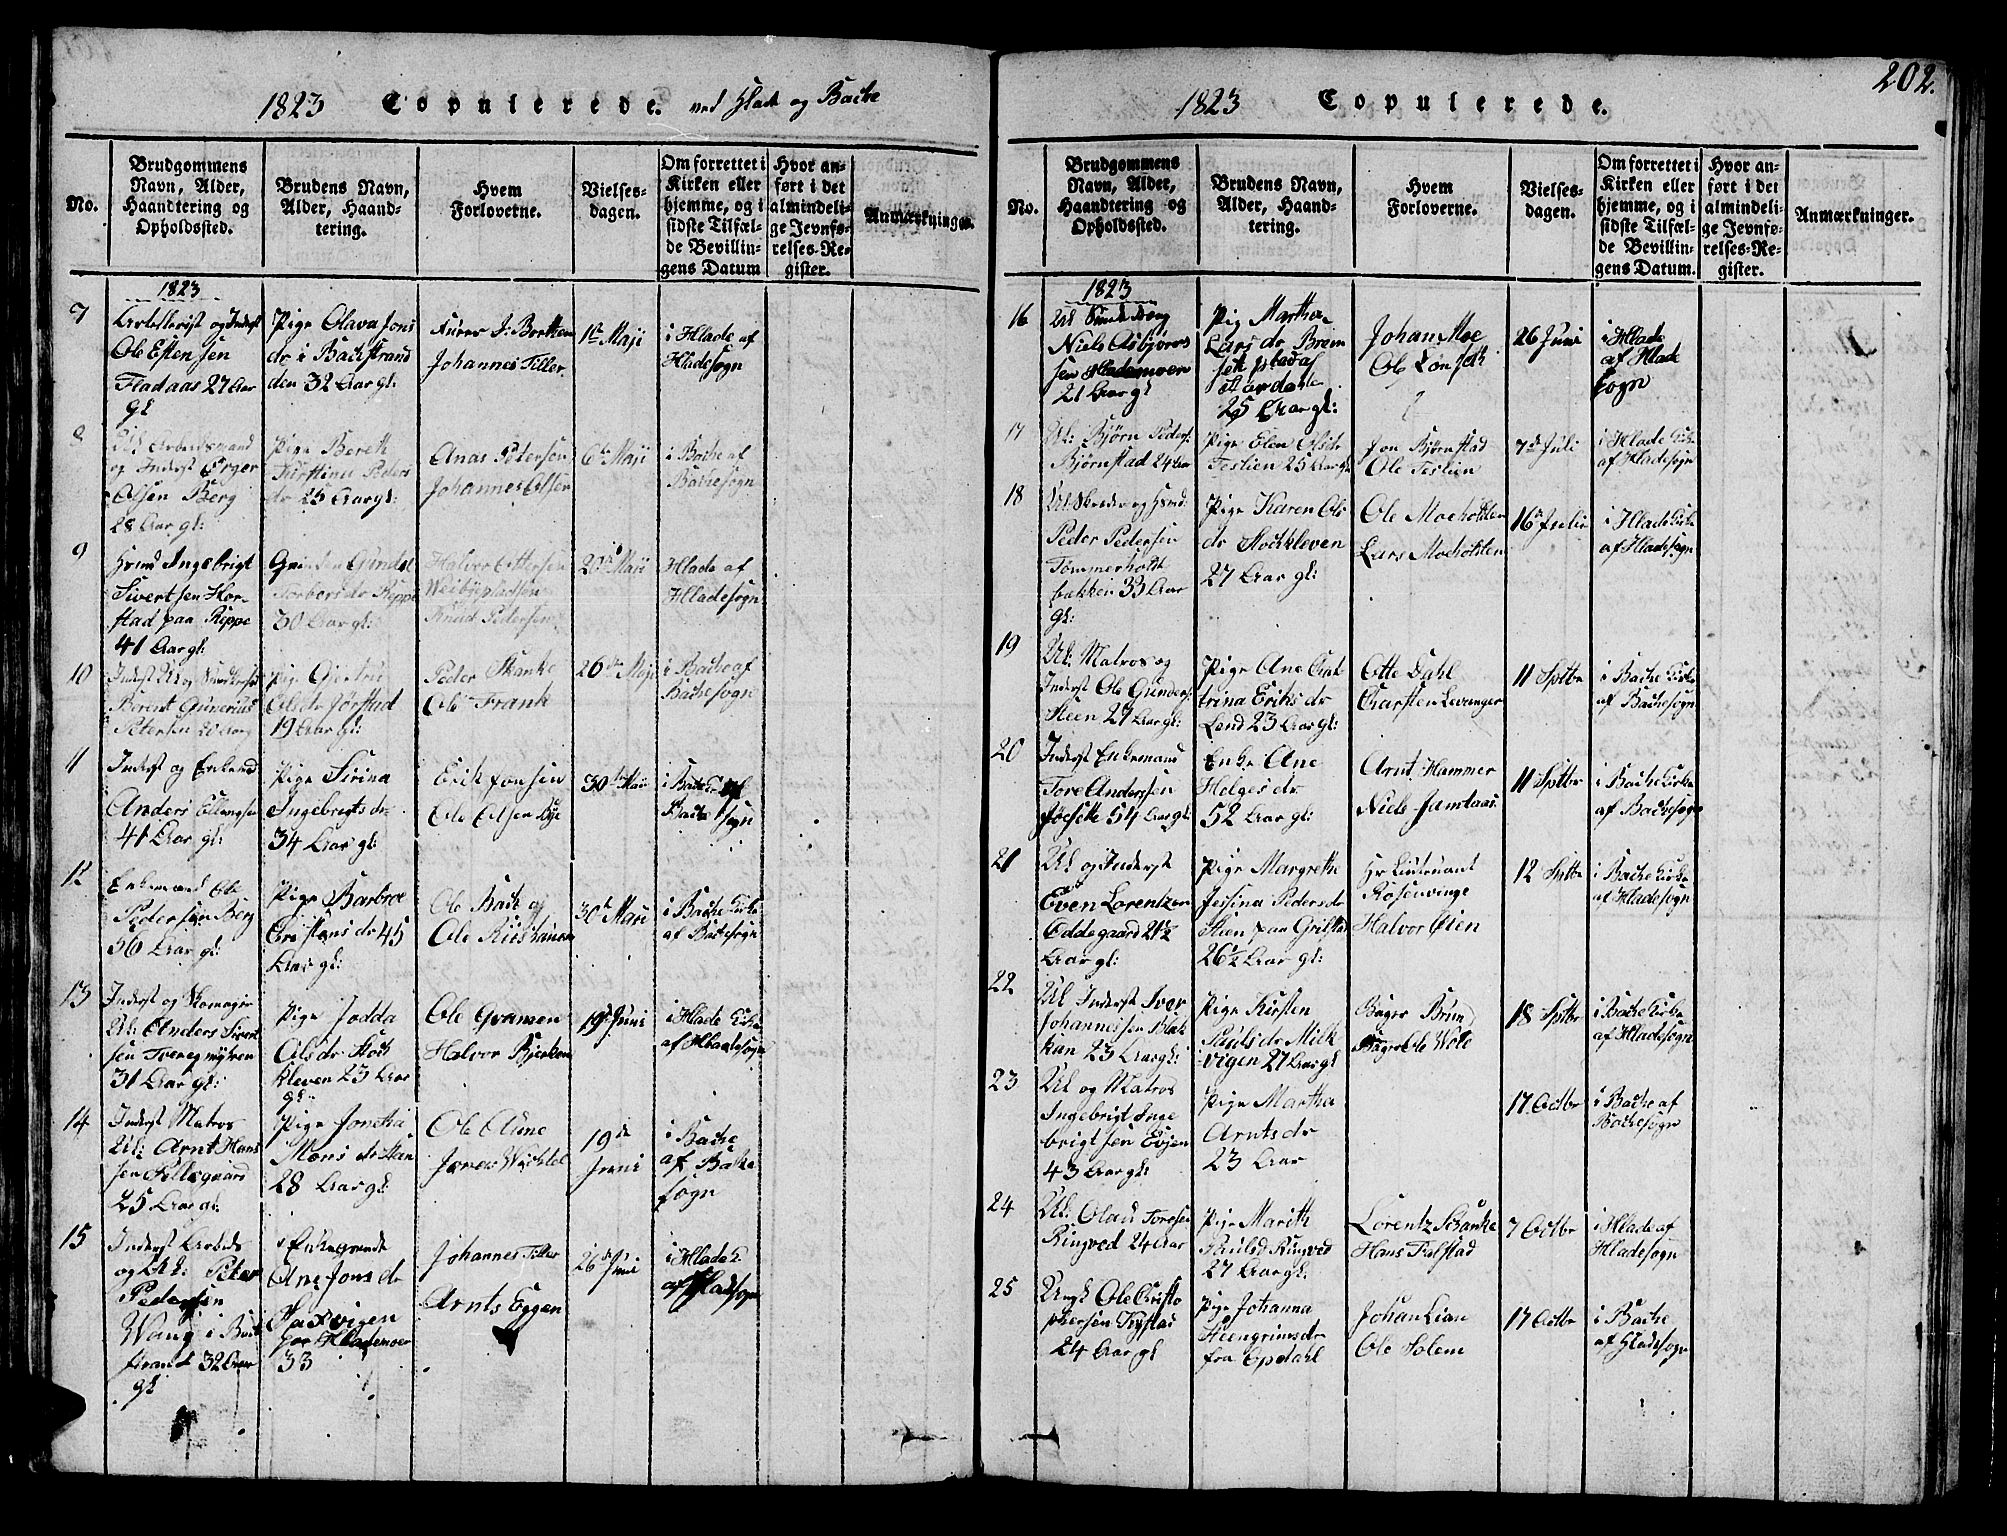 1823 Copulerede. ved Hlade og Bache
No.
Brudgommens Navn, Alder, Haandtering og Opholdssted.
Brudens Navn, Alder, Haandtering.
Hvem Forloverne.
Vielsesdagen.
Om forrettet i Kirken eller hjemme, og i sidste Tilfælde Bevillingens Datum
Hvor anført i det almindelige Jevnførelses-Register.
Anmærkninger.
1823
7
Artellerist og Inderst
Ole Estensen
Fladaas 27 Aar
gl
Pige Olava Jons
dr i Bachstrand
den 32 Aar gl:
Johannes Tiller
1ste Maji
i Hlade af
Hladesogn
8
Uk Arbeidsmand
og Inderst
Olsen Berg
28 Aar gl:
Pige Bereth
Kirstina Peders
dr 25 Aar gl:
Anas Petersen
Johannes Olsen
6te Maji
i Bache af
Bachesogn
9
Ingebrigt
Sivertsen
stad paa Rippe
41 Aar gl:
Gundel
Torbersdr Rippe
30 Aar gl:
Halvor Ottersen
Weibyepladsen
Knud Pedersen
20de Maji
Hlade af
Hladesogn
10
Berent Gunerius
Petersen 20 Aar
Pige Giertru
Olsdr Jørstad
19 Aar gl:
Peder Skanke
Ole Frank
26de Maji
i Bache af
Bachesogn
11
Inderst og Enkemd
Anders Ellingsen
41 Aar gl:
Pige Sirina
Ingebrigts dr
34 Aar gl:
Erik Jonsen
Ole Olsen Bye
30te Maii
i Bache af
Bache sogn
12
Enkemand Ole
Pedersen Berg
56 Aar gl:
Pige Barbroe
Cristens dr 45
Aar gl:
Ole Bach og
Ole
30te Maii
i Bache Kirke
af Bachesogn
13
Inderst og Skomager
Uk: Anders Sivert
sen
31 Aar gl:
Pige Jodda
Olsdr Stock
kleven 23 Aar
gl:
Ole Granmen
Halvor Bjerken
19de Juni
i Hlade Kirke
af Hladesogn
14
Inderst Matros
Uk: Arnt Hans
sen
25 Aar gl:
Pige Jonetha
Mons dr
28 Aar gl
Ole Aune
19de
Juni
i Bache
af Bache
sogn
15
Inderst Arbeids
og Uk: Peter
Pedersen
Wang i Bach
strand 32 Aar
gl
Enkequinde
Ane Jons dr
Haxvigen
Hlademoer
33
Johannes Tiller
Arnts Eggen
26de Juni
i Hlade K
af Hladesogn
202.
1823 Copulerede.
No.
Brudgommens Navn, Alder, Haandtering og Opholdssted.
Brudens Navn, Alder, Haandtering.
Hvem Forloverne.
Vielsesdagen.
Om forrettet i Kirken eller hjemme, og i sidste Tilfælde Bevillingens Datum.
Hvor anført i det almindelige Jevnførelses-Register.
Anmærkninger.
1823
16
Uk Smededreng
Niels Asbjørns
sen Hlademoen
21 Aar gl
Pig Martha
Lars dr Brem
set plads af
Stordalen
25 Aar gl:
Johan Moe
Ole Lonseth
26 Juni
i Hlade
af Hlade
sogn
17
Uk: Bjørn Peders:
Bjørnstad 24 Aar
Pige Elen Olsdr
Teslien 25 Aar gl
Jon Bjørnstad
Ole Teslien
7de Juli
i Hlade Kirke
af Hladesogn
18
Uk Skreder og Husmd:
Peder Pedersen
Tømmerholt
bakken 33 Aar
gl:
Pige Karen Ols
dr Stockkleven
27 Aar gl:
Ole Moeholten
Lars Moeholten
16de Julii
i Hlade Kirke
af Hladesogn
19
Uk: Matros og
Inderst Ole Gunders:
Steen 27 Aar gl:
Pige Ane Cat
trina Eriks dr
Lend 23 Aar gl:
Otte Dahl
Carsten Levanger
11 Sptbr
i Bache Kirke
af Bachesogn
20
Inderst Enkemand
Tore Anderssen
Jøssette 54 Aar gl:
Enke Ane
Helges dr
52 Aar gl:
Arnt Hammer
Niels Jamtaas
11 Sptbr
i Bache Kirke
af Bachesogn
21
Uk og Inderst
Even Lorentzen
Oddegaard 21½
Aar gl:
Pige Margreth
Jessina Pedersdr
Steen paa Grilstad
26½ Aar gl:
Hr Lieutenant
Rosenvinge
Halvor Øien
12 Sptbr
i Bache Kirke
af Hladesogn
22
Uk Inderst Ivar
Johannessen Bak
kan 23 Aar gl:
Pige Kirsten
Pauls dr Melk
vigen 27 Aar gl
Bager Brun
Bager Ole Wold
18 Sptbr
i Bache Kirke
af Hladesogn
23
Uk og Matros
Ingebrigt Inge
brigtsen Evjen
43 Aar gl:
Pige Martha
Arnts dr
23 Aar
17 Octbr
i Bache af
Bachesogn
24
Uk: Olaus Toresen
Ringved 24 Aar
Pige Marith
Paulsd Ringved
27 Aar gl:
Lorentz Schanke
Hans Falstad
7 Octbr
i Hlade af
Hladesogn
25
Ungk Ole Cristo
phersen Tystad
24 Aar gl
Pige Johanna
Steengrimsdr
fra Opdahl
Johan Lian
Ole Solem
17 Octbr
i Bache
af Hladesogn